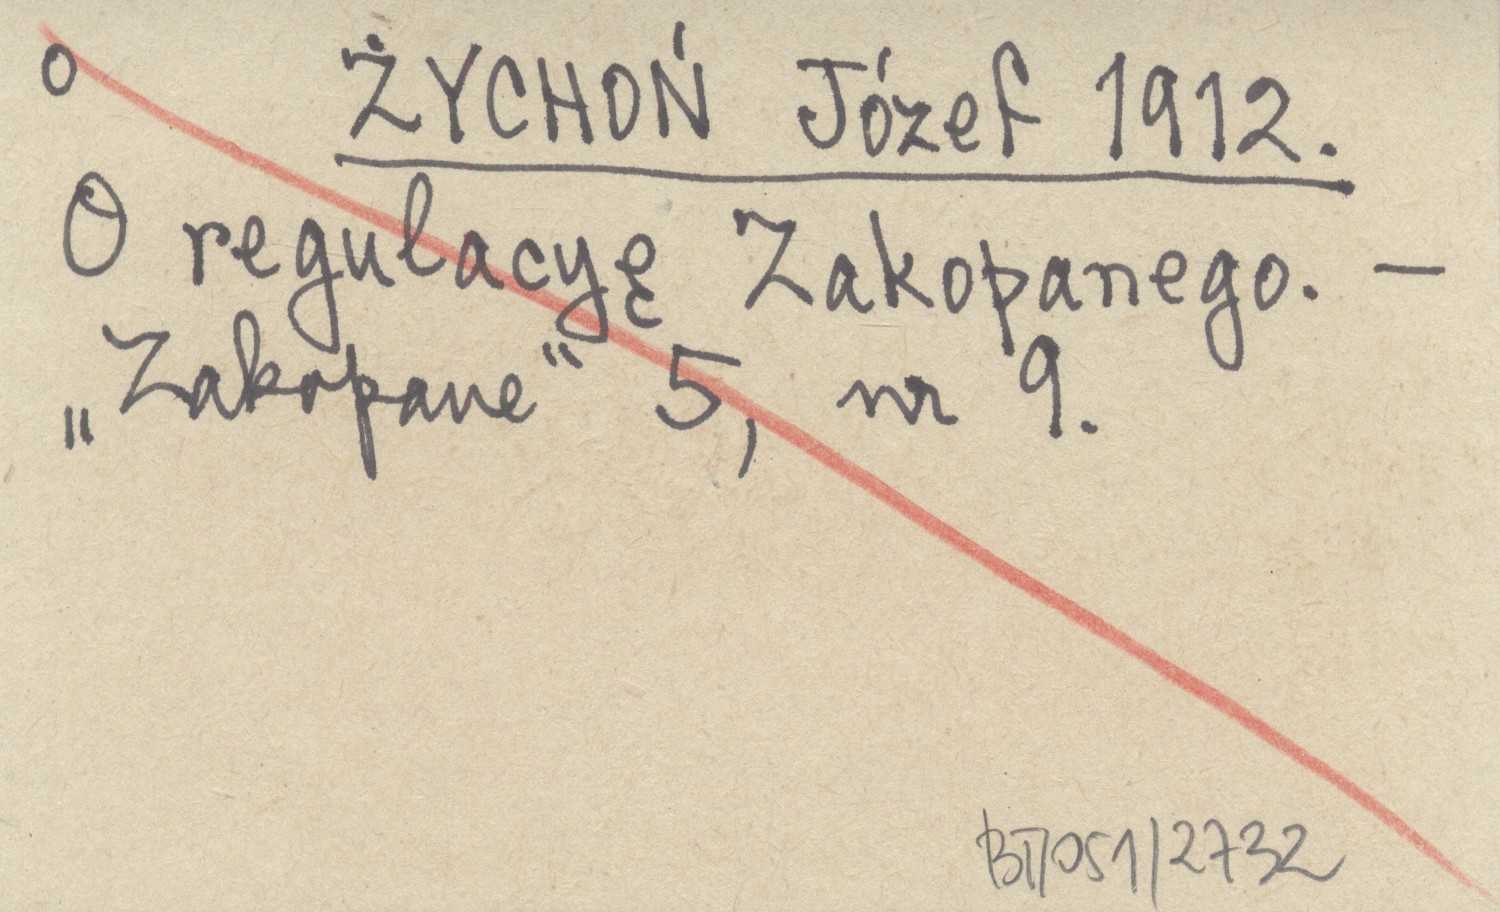 o ŻYCHOŃ Józef 1912.
O regulacyę Zakopanego. —
„Zakopane“ 5, nr 9.
BT/051/2732